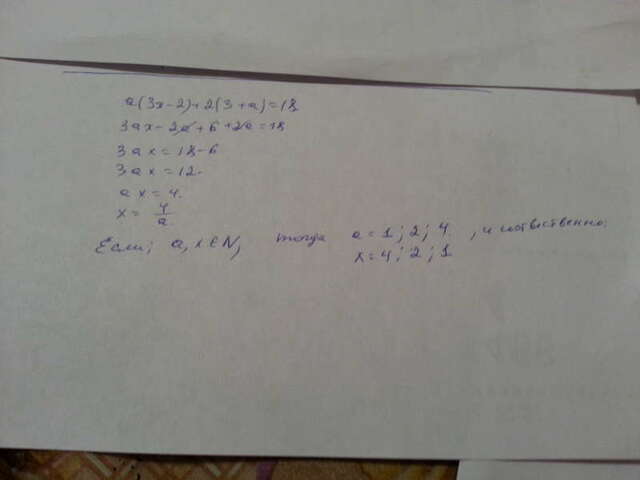 a(3x-2)+2(3+a)=18
3ax-2a+6+2a=18
3ax=18-6
3ax=12
ax=4.
x=4/a.
Если; a,x∈N, тогда a=1; 2; 4. , и соотвественно:
x=4; 2; 1